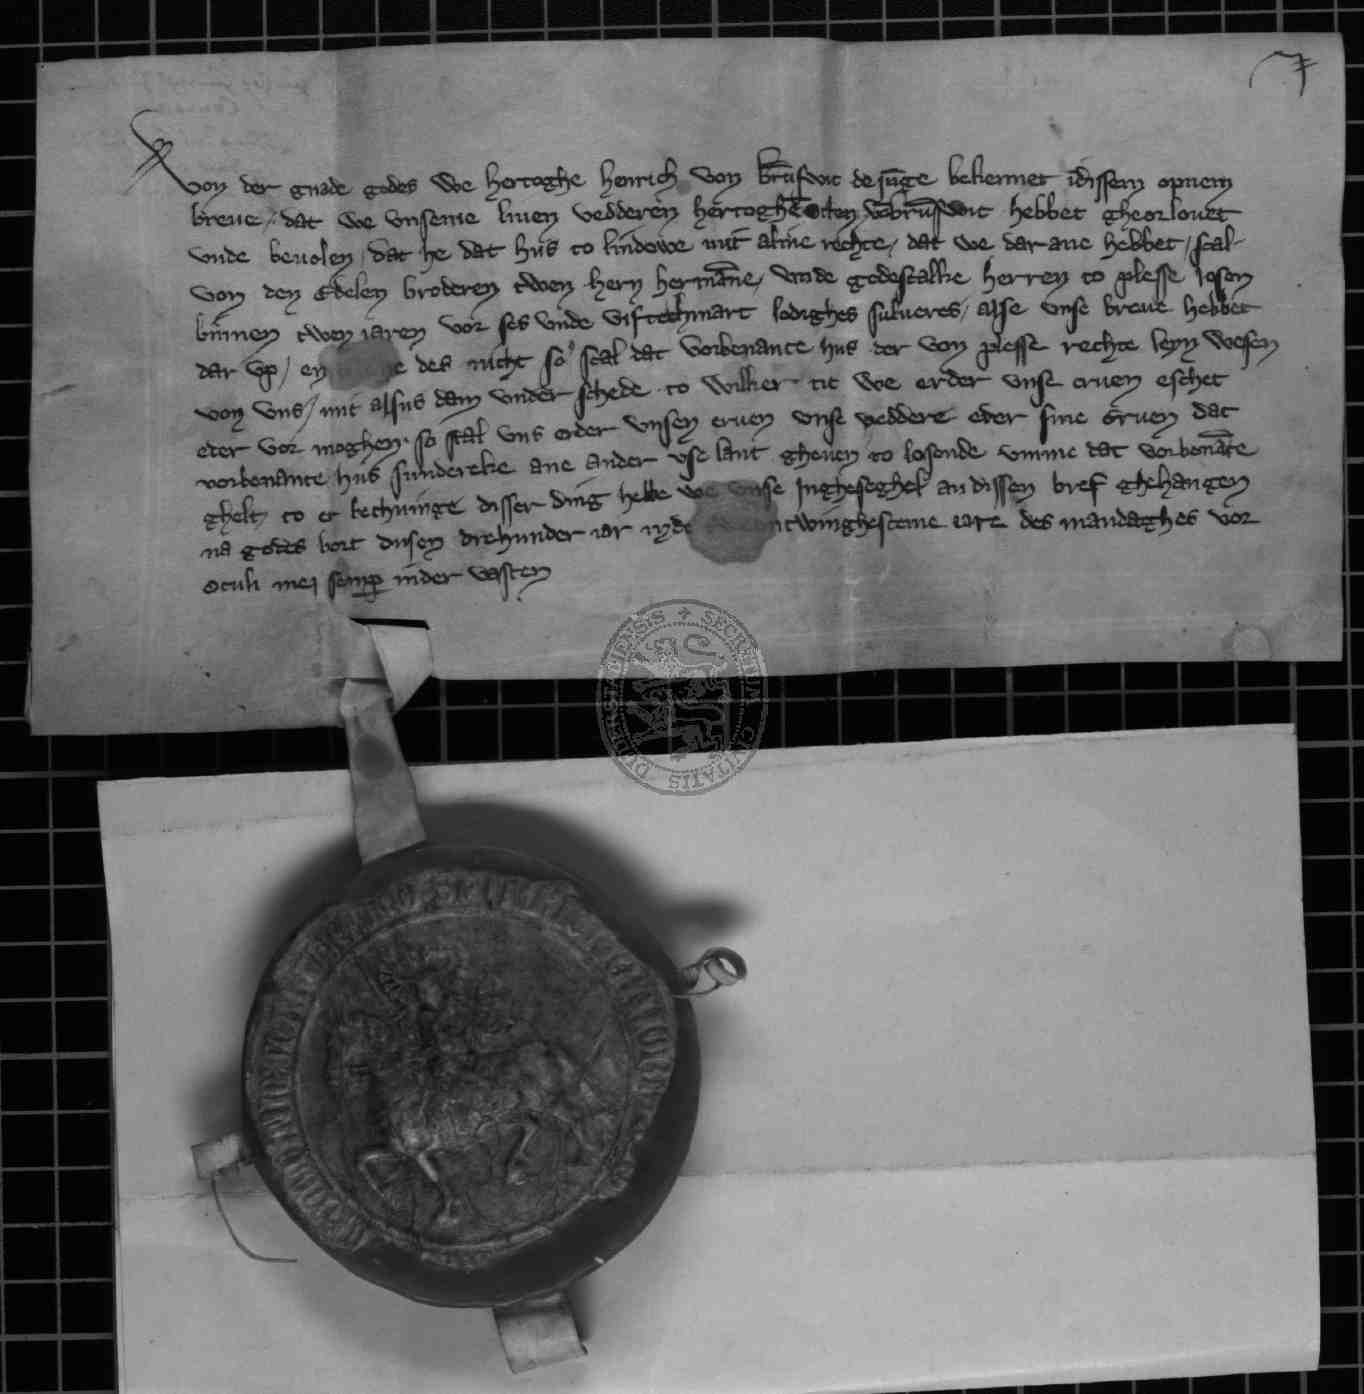 7
von der gnade godes We hertoghe henrich von brūswic de iūge bekennet ī dissem opnem
breue / dat we vnseme liuen vedderen hertoghē otten vō brūswic hebbet gheorlouet
vnde beuolen / dat he dat hus to lindowe mit alme rechte / dat we dar ane hebbet / scal
von den Edelen broderen twen hern hermāne / vnde godescalke herren to plesse losen
binnen twen iaren vor ses vnde viftech mart lodighes sulueres / alse vnse breue hebbet
dar vp / en des nicht so scal dat vorbenante hus der von plesse rechte leyn wesen
von vns / mit alsus dam vnder schede to wilker tit we erder vnse eruen eschet
eder vor moghen so scal vns erder vnsen eruen vnse veddere eder sine eruen dat
vorbenante hus sundereke ane ander vse lant gheuen to losende vmme dat vorbenāte
ghelt to er kechninge disser ding hebbe we vnse Ingheseghel an dissen bref ghehangen
na godes bort dusen drehunder iar in de twinghesteme iare des mandaghes vor
oculi mei semp in der vasten
SECRETUM CIVITATIS DUDERSTADIENSIS